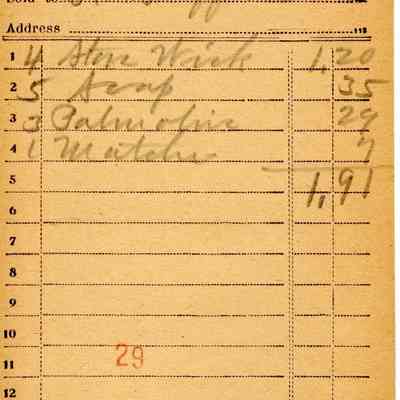 Address
1 4 Stove Wick 1,20
2 5 Soap 35
3 3 Palmolive 29
4 1 Matches 7
5 1,91
6
7
8
9
10
29
11
12